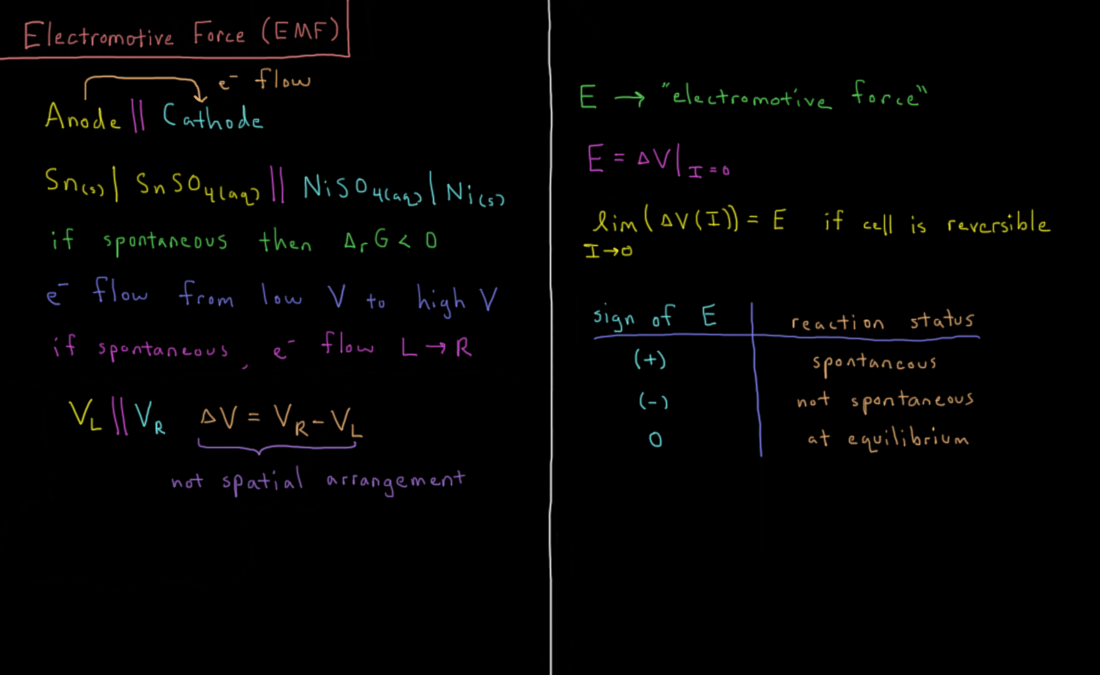 Electromotive Force (EMF)
e⁻ flow
Anode || Cathode
Sn(s) | SnSO₄(aq) || NiSO₄(aq) | Ni(s)
if spontaneous then ΔᵣG < 0
e⁻ flow from low V to high V
if spontaneous, e⁻ flow L → R
V_L || V_R ΔV = V_R - V_L
not spatial arrangement
E → "electromotive force"
E = ΔV|_I=0
lim (ΔV(I)) = E if cell is reversible
I→0
sign of E | reaction status
(+) spontaneous
(-) not spontaneous
0 at equilibrium